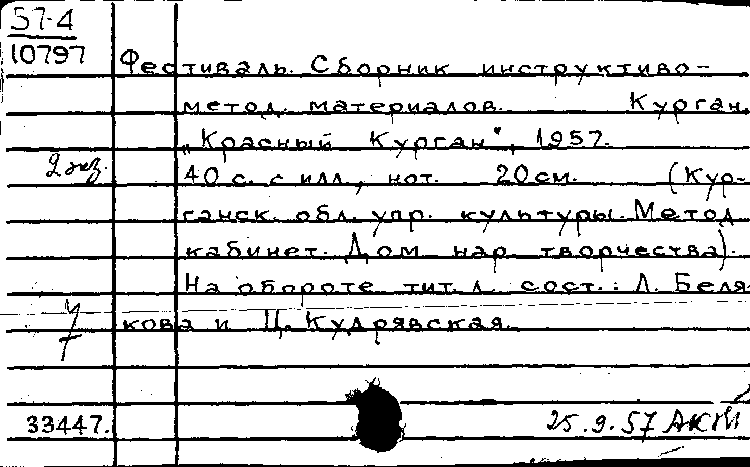 57-4
10797
Фестиваль. Сборник инструктиво-
метод. материалов. Курган,
„Красный Курган", 1957.
2 экз.
40 с. с илл., нот. 20 см. (Кур-
ганск. обл. упр. культуры. Метод.
кабинет. Дом нар. творчества).
На обороте тит. л. сост.: Л. Беля-
кова и Ц. Кудрявская.
33447.
25.9.57